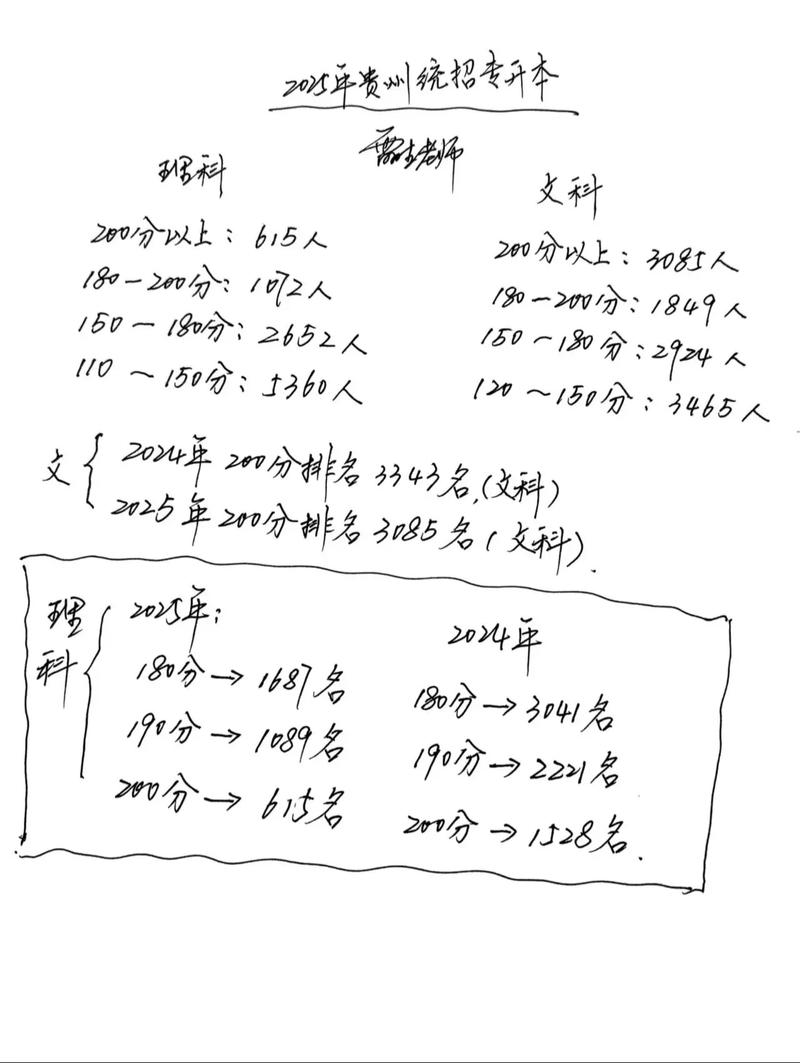 2025年贵州统招专升本
老师
理科
200分以上：615人
180－200分：1072人
150－180分：2652人
110～150分：5360人
文科
200分以上：3085人
180－200分：1849人
150－180分：2924人
120～150分：3465人
文
2024年200分排名3343名,(文科)
2025年200分排名3085名(文科).
理科
2025年：
180分→1687名
190分→1089名
200分→615名
2024年
180分→3041名
190分→2221名
200分→1528名.